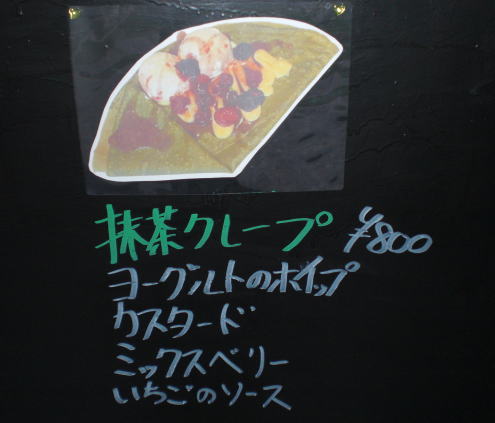 抹茶クレープ ¥800
ヨーグルトのホイップ
カスタード
ミックスベリー
いちごのソース